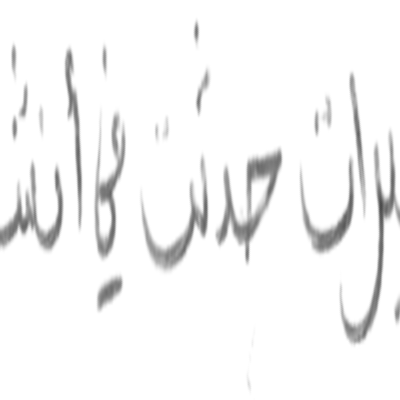 يرات حدثت في أنش